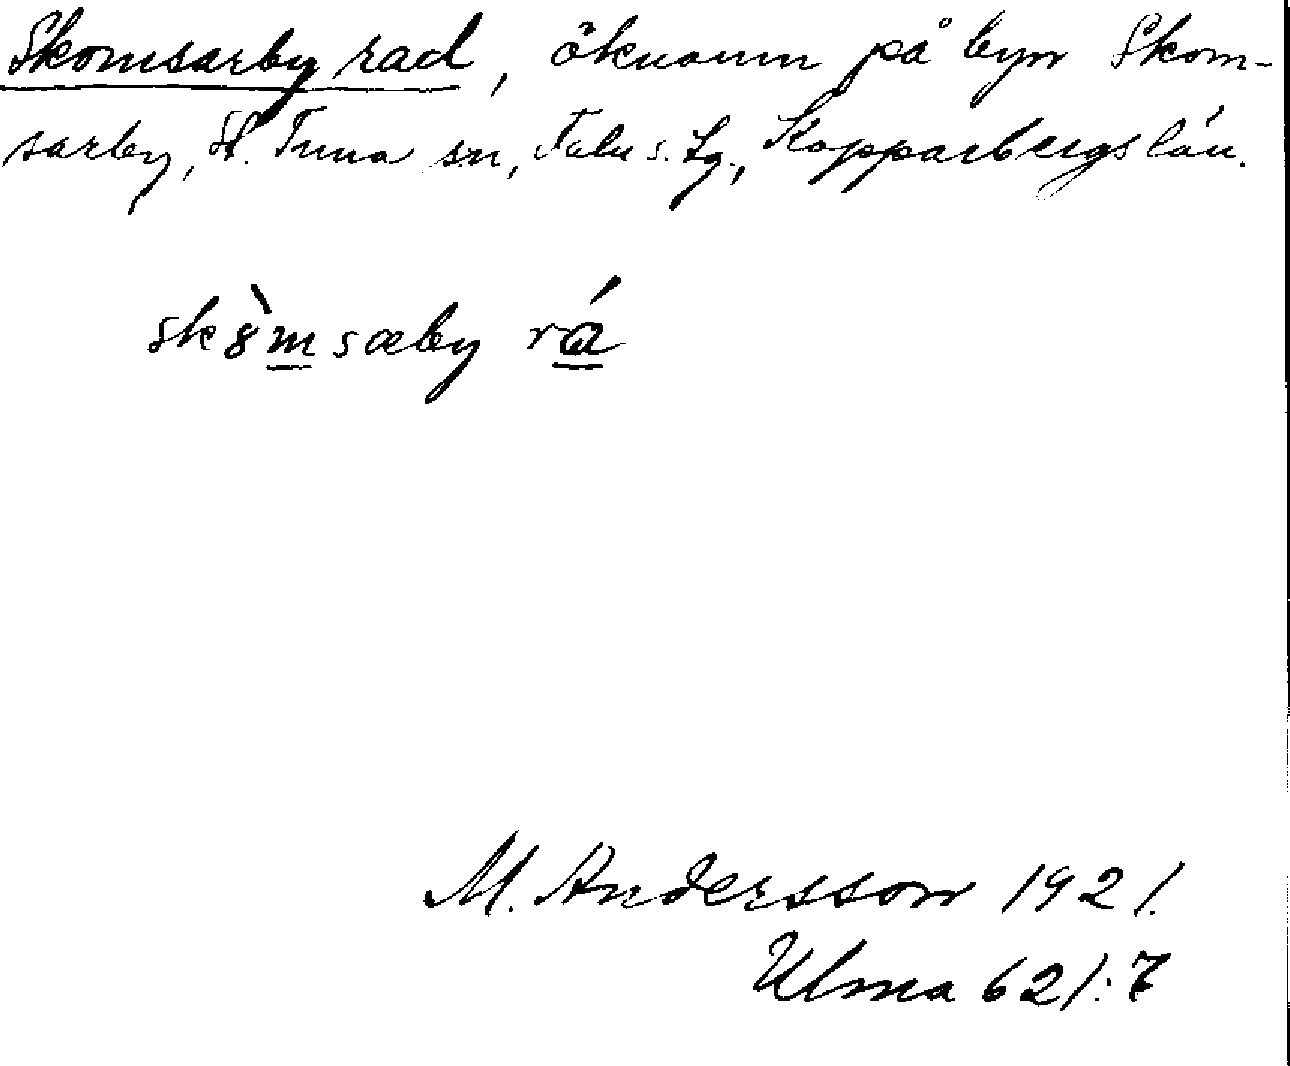 Skomsarby rad, öknamn på byn Skom-
sarby, St. Tuna sn, Falu s. tg., Kopparbergs län.
sk8̀msæby rá
M. Andersson 1921.
Ulma 621:7